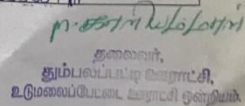 ந.காளியம்மாள்
தலைவர்,
தும்பலப்பட்டி ஊராட்சி,
உடுமலைப்பேட்டை ஊராட்சி ஒன்றியம்